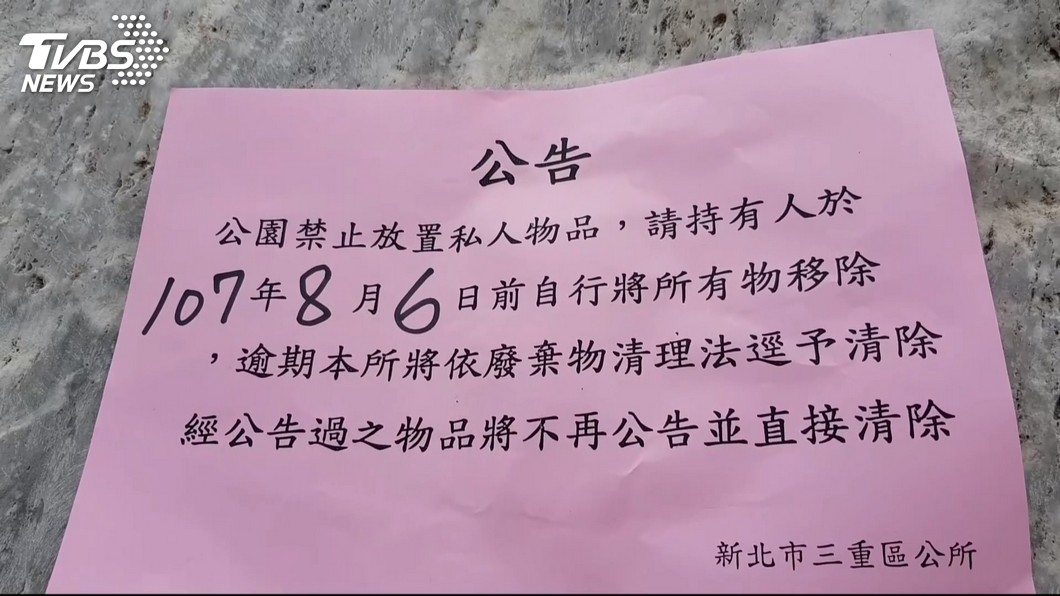 TVBS
NEWS
公告
公園禁止放置私人物品，請持有人於
107年8月6日前自行將所有物移除
，逾期本所將依廢棄物清理法逕予清除
經公告過之物品將不再公告並直接清除
新北市三重區公所